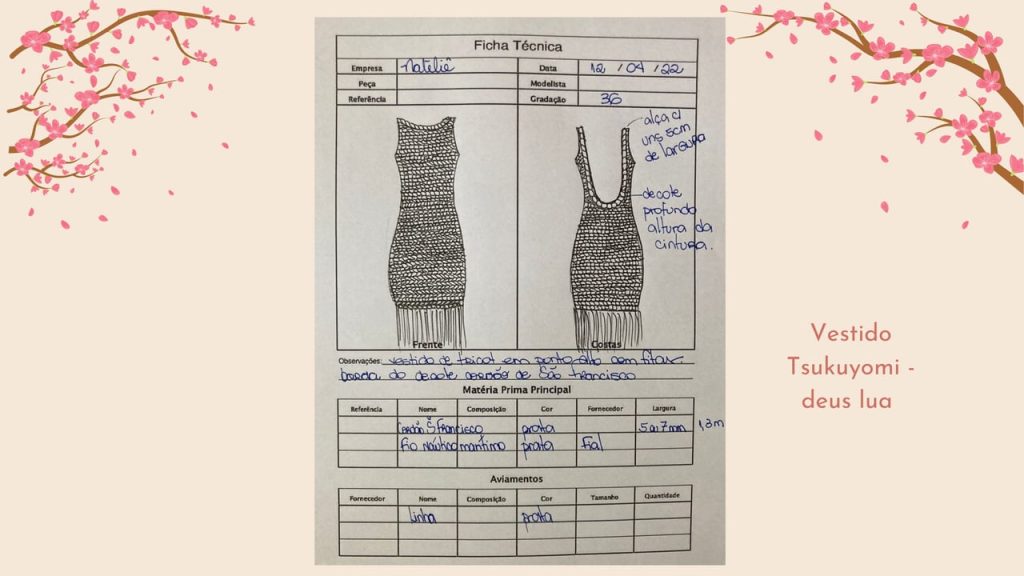 Ficha Técnica
Empresa Nateliê Data 12 / 04 / 22
Peça Modelista
Referência Gradação 36
alça c/
uns 5cm
de largura
decote
profundo
altura da
cintura.
Frente Costas
Observações: vestido de tricot em ponto alto com
borda do decote cordão de São Francisco
Matéria Prima Principal
Referência Nome Composição Cor Fornecedor Largura
Cordão S Francisco prata 5 a 7mm 1,3m
fio náutico marítimo prata Fial
Aviamentos
Fornecedor Nome Composição Cor Tamanho Quantidade
linha prata
Vestido
Tsukuyomi -
deus lua